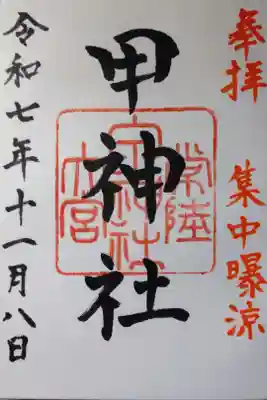 奉拝 集中曝涼
甲神社
常陸
甲神社
大宮
令和七年十一月八日